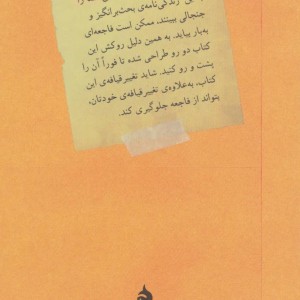 زندگی‌نامه‌ی بحث‌برانگیز و
جنجالی ببینند، ممکن است فاجعه‌ای
به‌بار بیاید. به همین دلیل روکش این
کتاب دو رو طراحی شده تا فوراً آن را
پشت و رو کنید. شاید تغییرقیافه‌ی این
کتاب، به‌علاوه‌ی تغییرقیافه‌ی خودتان،
بتواند از فاجعه جلوگیری کند.